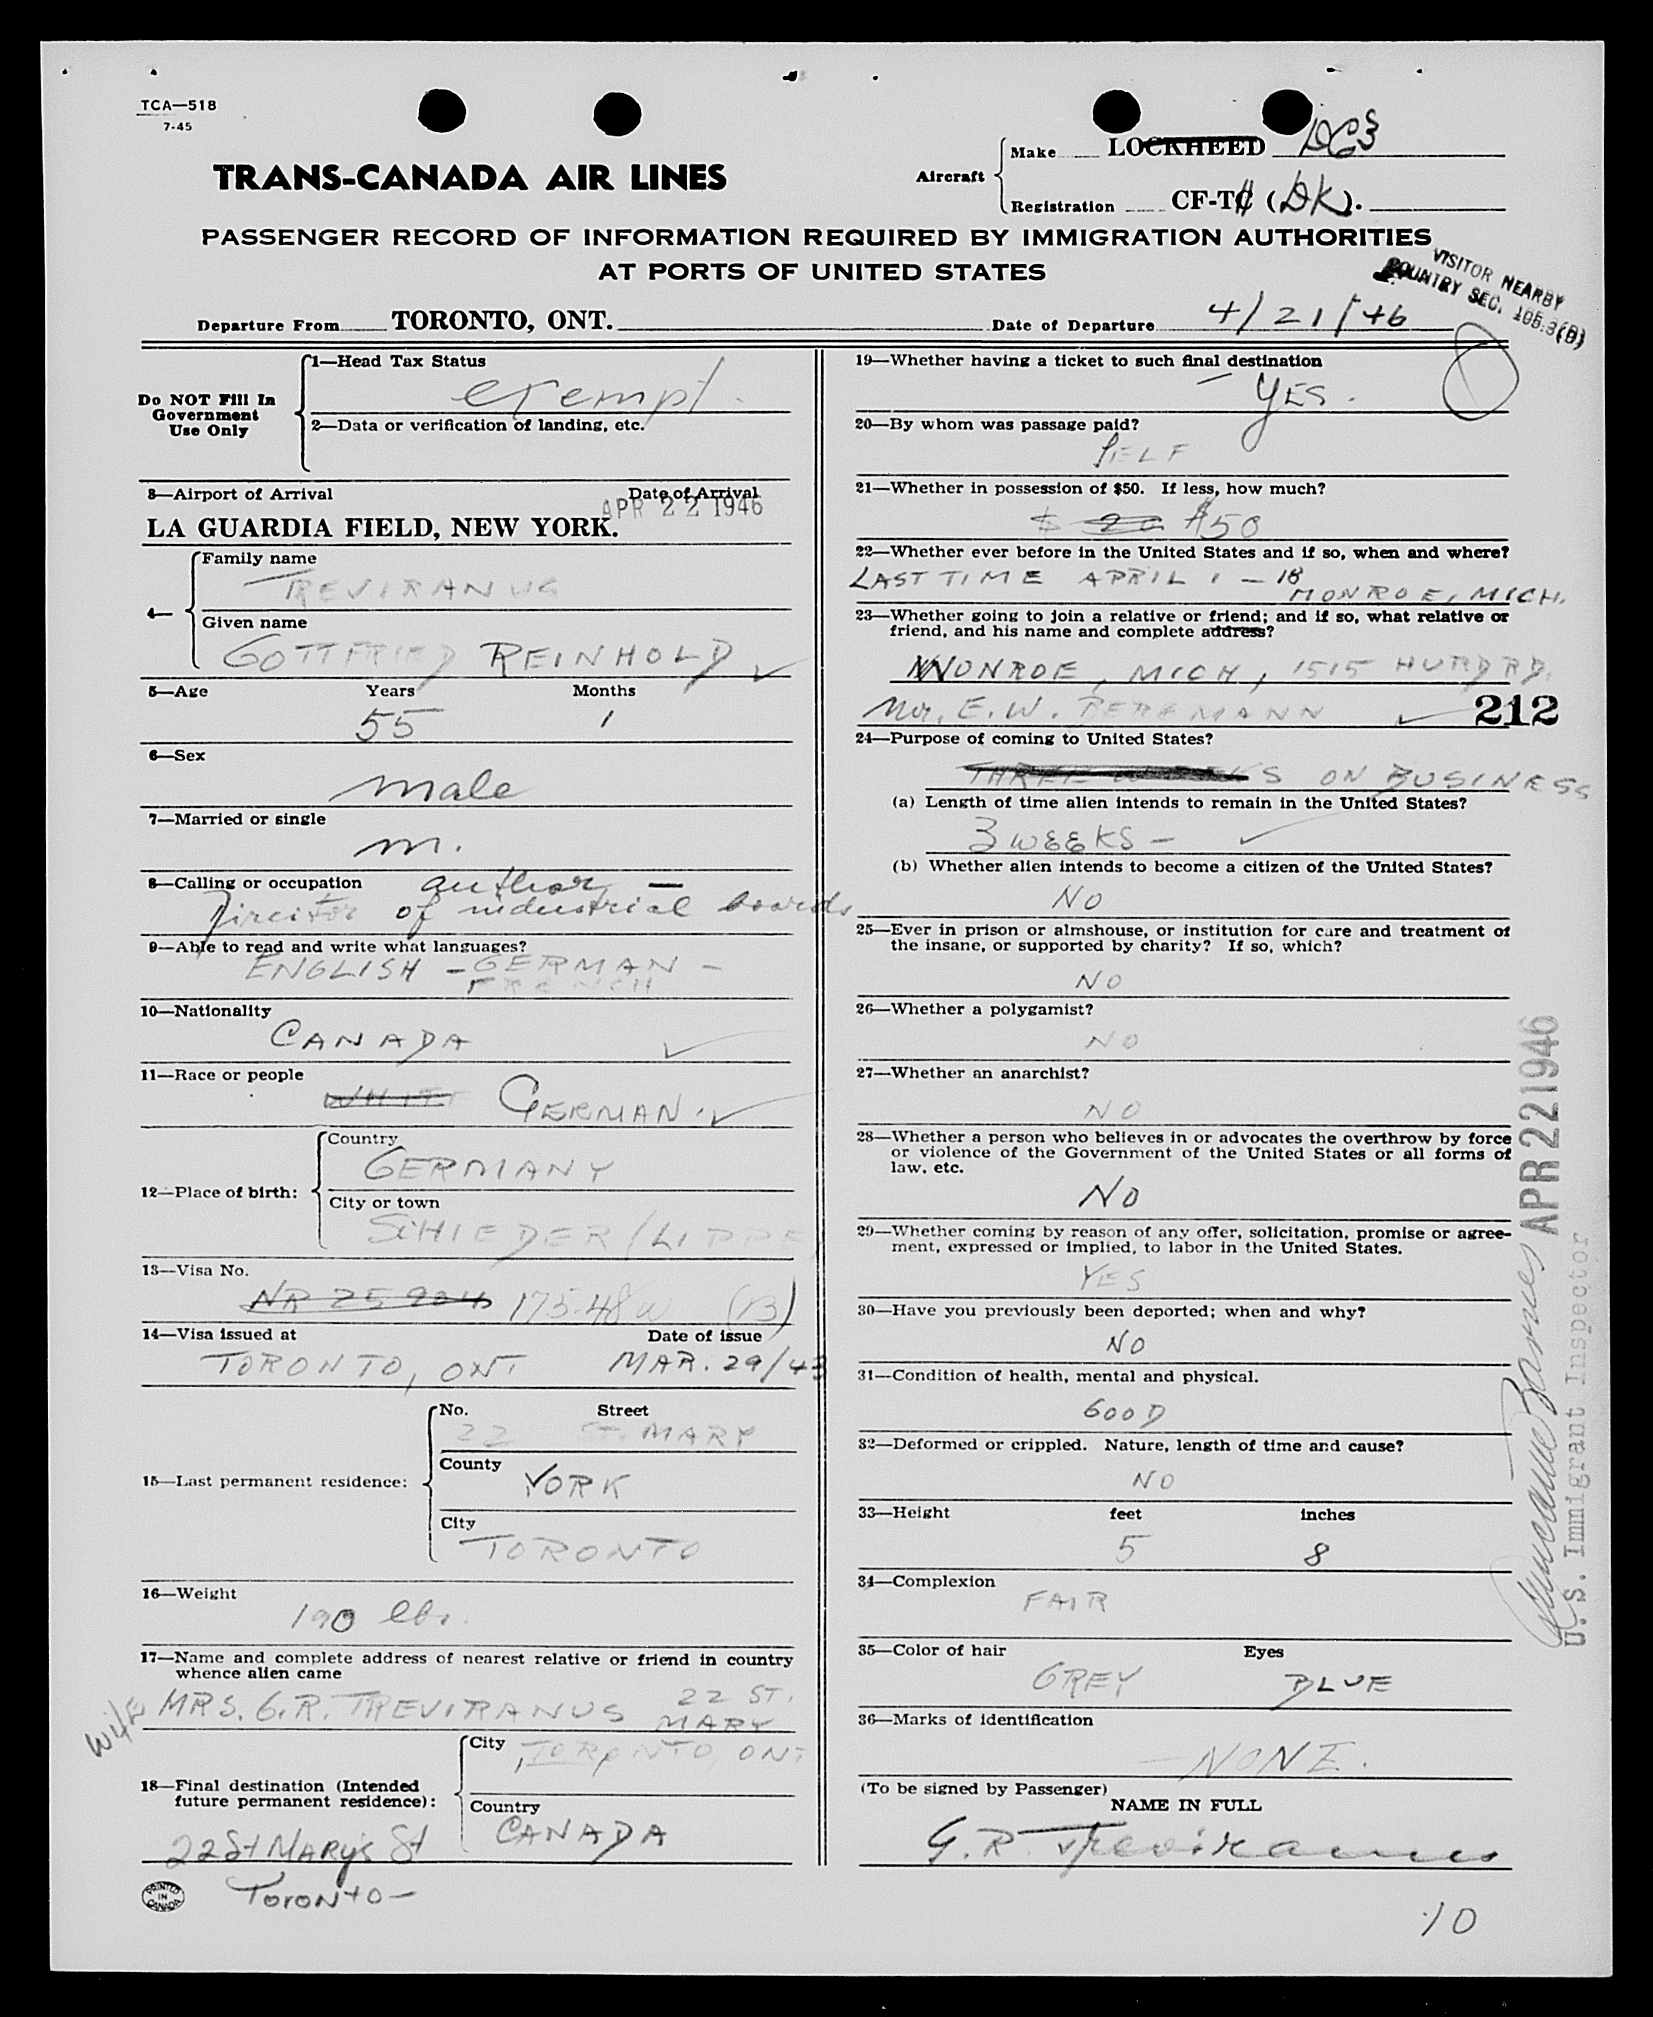 TCA—518
7-45
TRANS-CANADA AIR LINES
Aircraft
Make LOCKHEED DC3
Registration CF-TC (DK).
PASSENGER RECORD OF INFORMATION REQUIRED BY IMMIGRATION AUTHORITIES
AT PORTS OF UNITED STATES
VISITOR NEARBY
COUNTRY SEC. 105.3(B)
Departure From TORONTO, ONT. Date of Departure 4/21/46
Do NOT Fill In
Government
Use Only
1—Head Tax Status
exempt.
2—Data or verification of landing, etc.
3—Airport of Arrival Date of Arrival
APR 22 1946
LA GUARDIA FIELD, NEW YORK.
4—
Family name
TREVIRANUS
Given name
GOTTFRIED REINHOLD
5—Age Years Months
55 1
6—Sex
male
7—Married or single
m.
8—Calling or occupation author —
Director of industrial boards
9—Able to read and write what languages?
ENGLISH - GERMAN -
FRENCH
10—Nationality
CANADA
11—Race or people
WHITE GERMAN.
12—Place of birth:
Country
GERMANY
City or town
SCHIEDER/LIPPE
13—Visa No.
NR 25904 175-48 (B)
14—Visa issued at Date of issue
TORONTO, ONT MAR. 29/43
15—Last permanent residence:
No. Street
22 ST. MARY
County
YORK
City
TORONTO
16—Weight
190 lbs.
17—Name and complete address of nearest relative or friend in country
whence alien came
wife MRS. G.R. TREVIRANUS 22 ST.
MARY
18—Final destination (Intended
future permanent residence):
City TORONTO, ONT
Country
CANADA
22 St MARy's St
Toronto—
PRINTED
IN
CANADA
19—Whether having a ticket to such final destination
- YES.
20—By whom was passage paid?
SELF
21—Whether in possession of $50. If less, how much?
$ 20 $50
22—Whether ever before in the United States and if so, when and where?
LAST TIME APRIL 1 - 18
MONROE, MICH.
23—Whether going to join a relative or friend; and if so, what relative or
friend, and his name and complete address?
MONROE, MICH, 1515 HURD RD.
Mr. E.W. 212
24—Purpose of coming to United States?
THREE WEEKS ON BUSINESS
(a) Length of time alien intends to remain in the United States?
3 WEEKS -
(b) Whether alien intends to become a citizen of the United States?
NO
25—Ever in prison or almshouse, or institution for care and treatment of
the insane, or supported by charity? If so, which?
NO
26—Whether a polygamist?
NO
27—Whether an anarchist?
NO
28—Whether a person who believes in or advocates the overthrow by force
or violence of the Government of the United States or all forms of
law, etc.
NO
29—Whether coming by reason of any offer, solicitation, promise or agree-
ment, expressed or implied, to labor in the United States.
YES
30—Have you previously been deported; when and why?
NO
31—Condition of health, mental and physical.
GOOD
32—Deformed or crippled. Nature, length of time and cause?
NO
33—Height feet inches
5 8
34—Complexion
FAIR
35—Color of hair Eyes
GREY BLUE
36—Marks of identification
— NONE.
(To be signed by Passenger)
NAME IN FULL
G. R. Treviranus
10
APR 22 1946
U.S. Immigrant Inspector